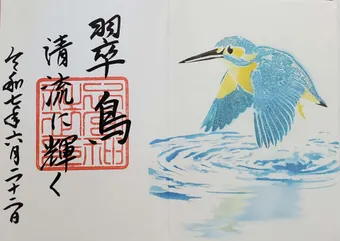 翠鳥
清流に輝く
令和七年六月二十二日